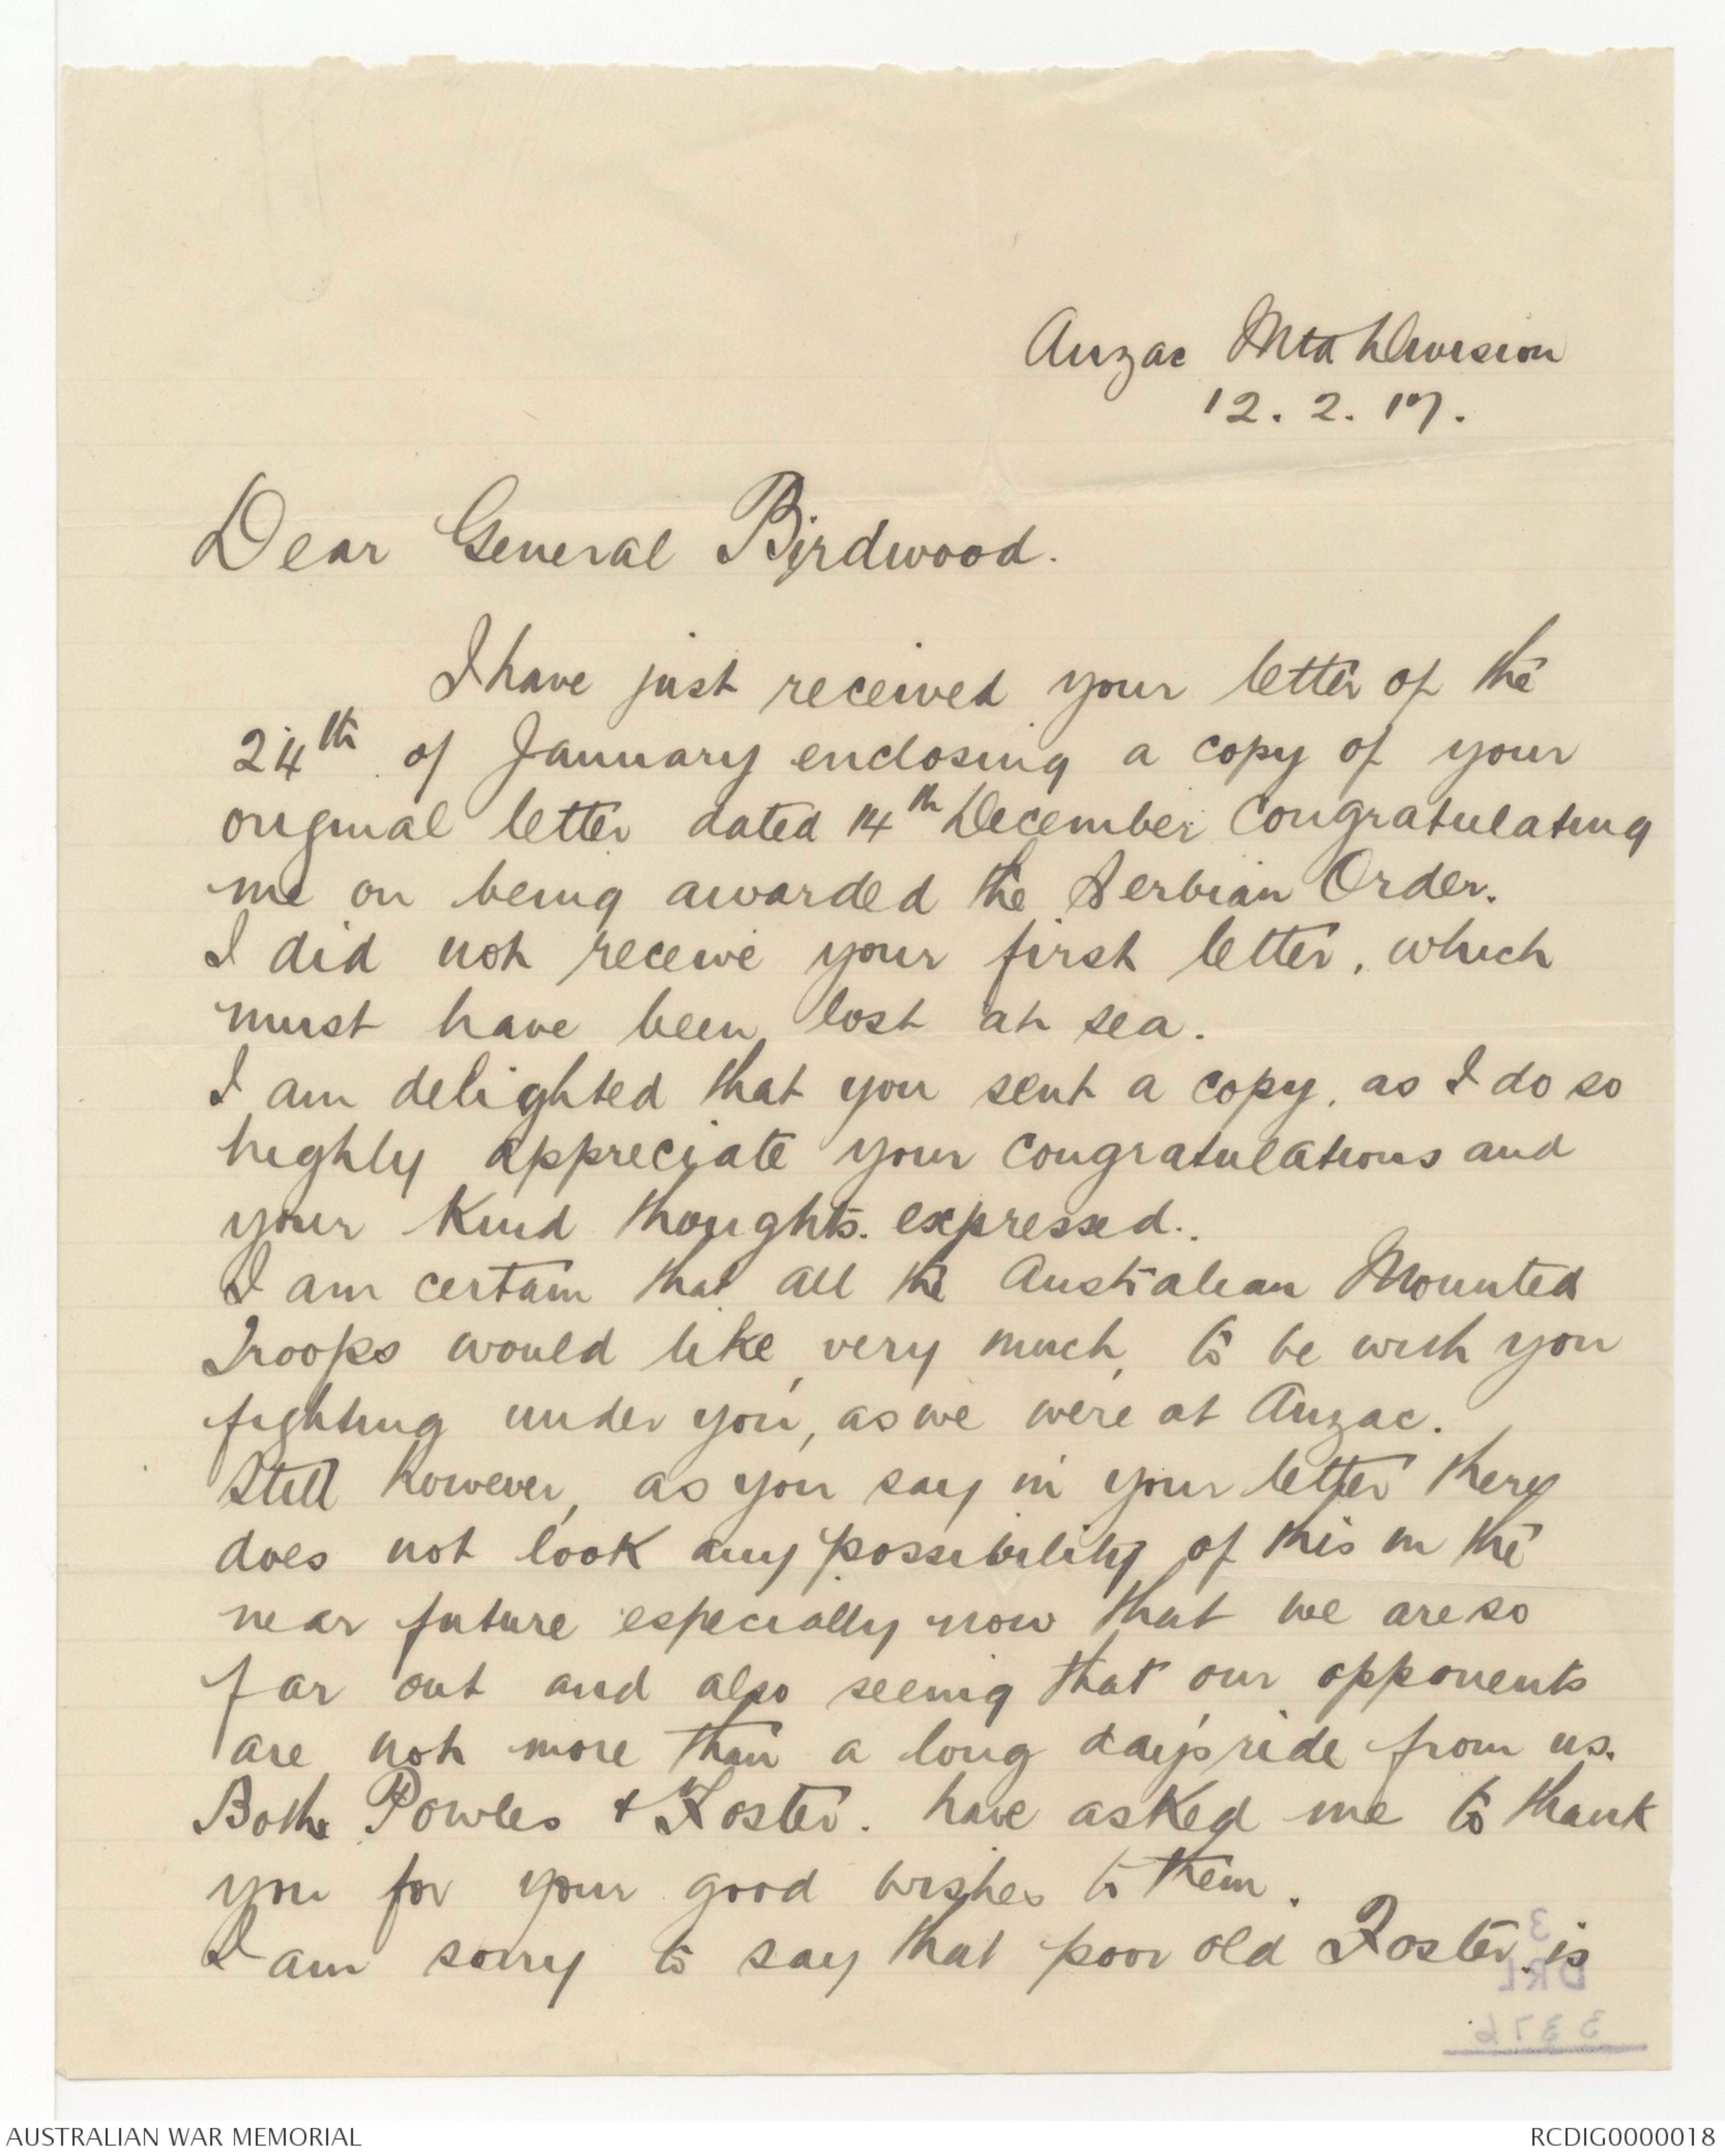 Anzac Mtd Division
12. 2. 17.
Dear General Birdwood.
I have just received your letter of the
24th of January enclosing a copy of your
original letter dated 14th December congratulating
me on being awarded the Serbian Order.
I did not receive your first letter, which
must have been lost at sea.
I am delighted that you sent a copy, as I do so
highly appreciate your congratulations and
your kind thoughts. expressed.
I am certain that all the Australian Mounted
Troops would like, very much, to be with you
fighting under you, as we were at Anzac.
Still however, as you say in your letter there
does not look any possibility of this in the
near future especially now that we are so
far out and also seeing that our opponents
are not more than a long day's ride from us.
Both Powles & Foster. have asked me to thank
you for your good wishes to them.
I am sorry to say that poor old Foster is
3
DRL
3376
AUSTRALIAN WAR MEMORIAL
RCDIG0000018